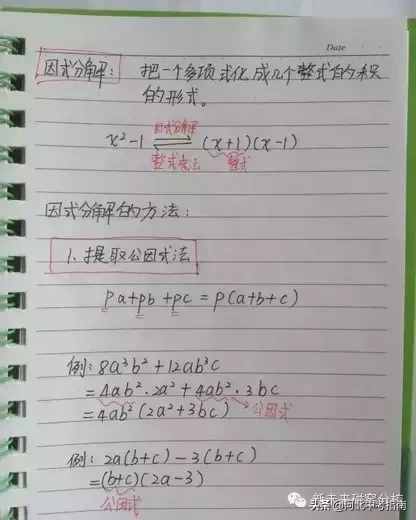 Date
因式分解： 把一个多项式化成几个整式的积
的形式。
因式分解
x²-1 ⇌ (x+1)(x-1)
整式乘法 整式
因式分解的方法：
1. 提取公因式法
pa+pb+pc = p(a+b+c)
例：8a³b²+12ab³c
=4ab²·2a²+4ab²·3bc
=4ab²(2a²+3bc) 公因式
例：2a(b+c)-3(b+c)
=(b+c)(2a-3)
公因式
新未来研察分析
头条@河北中考指南